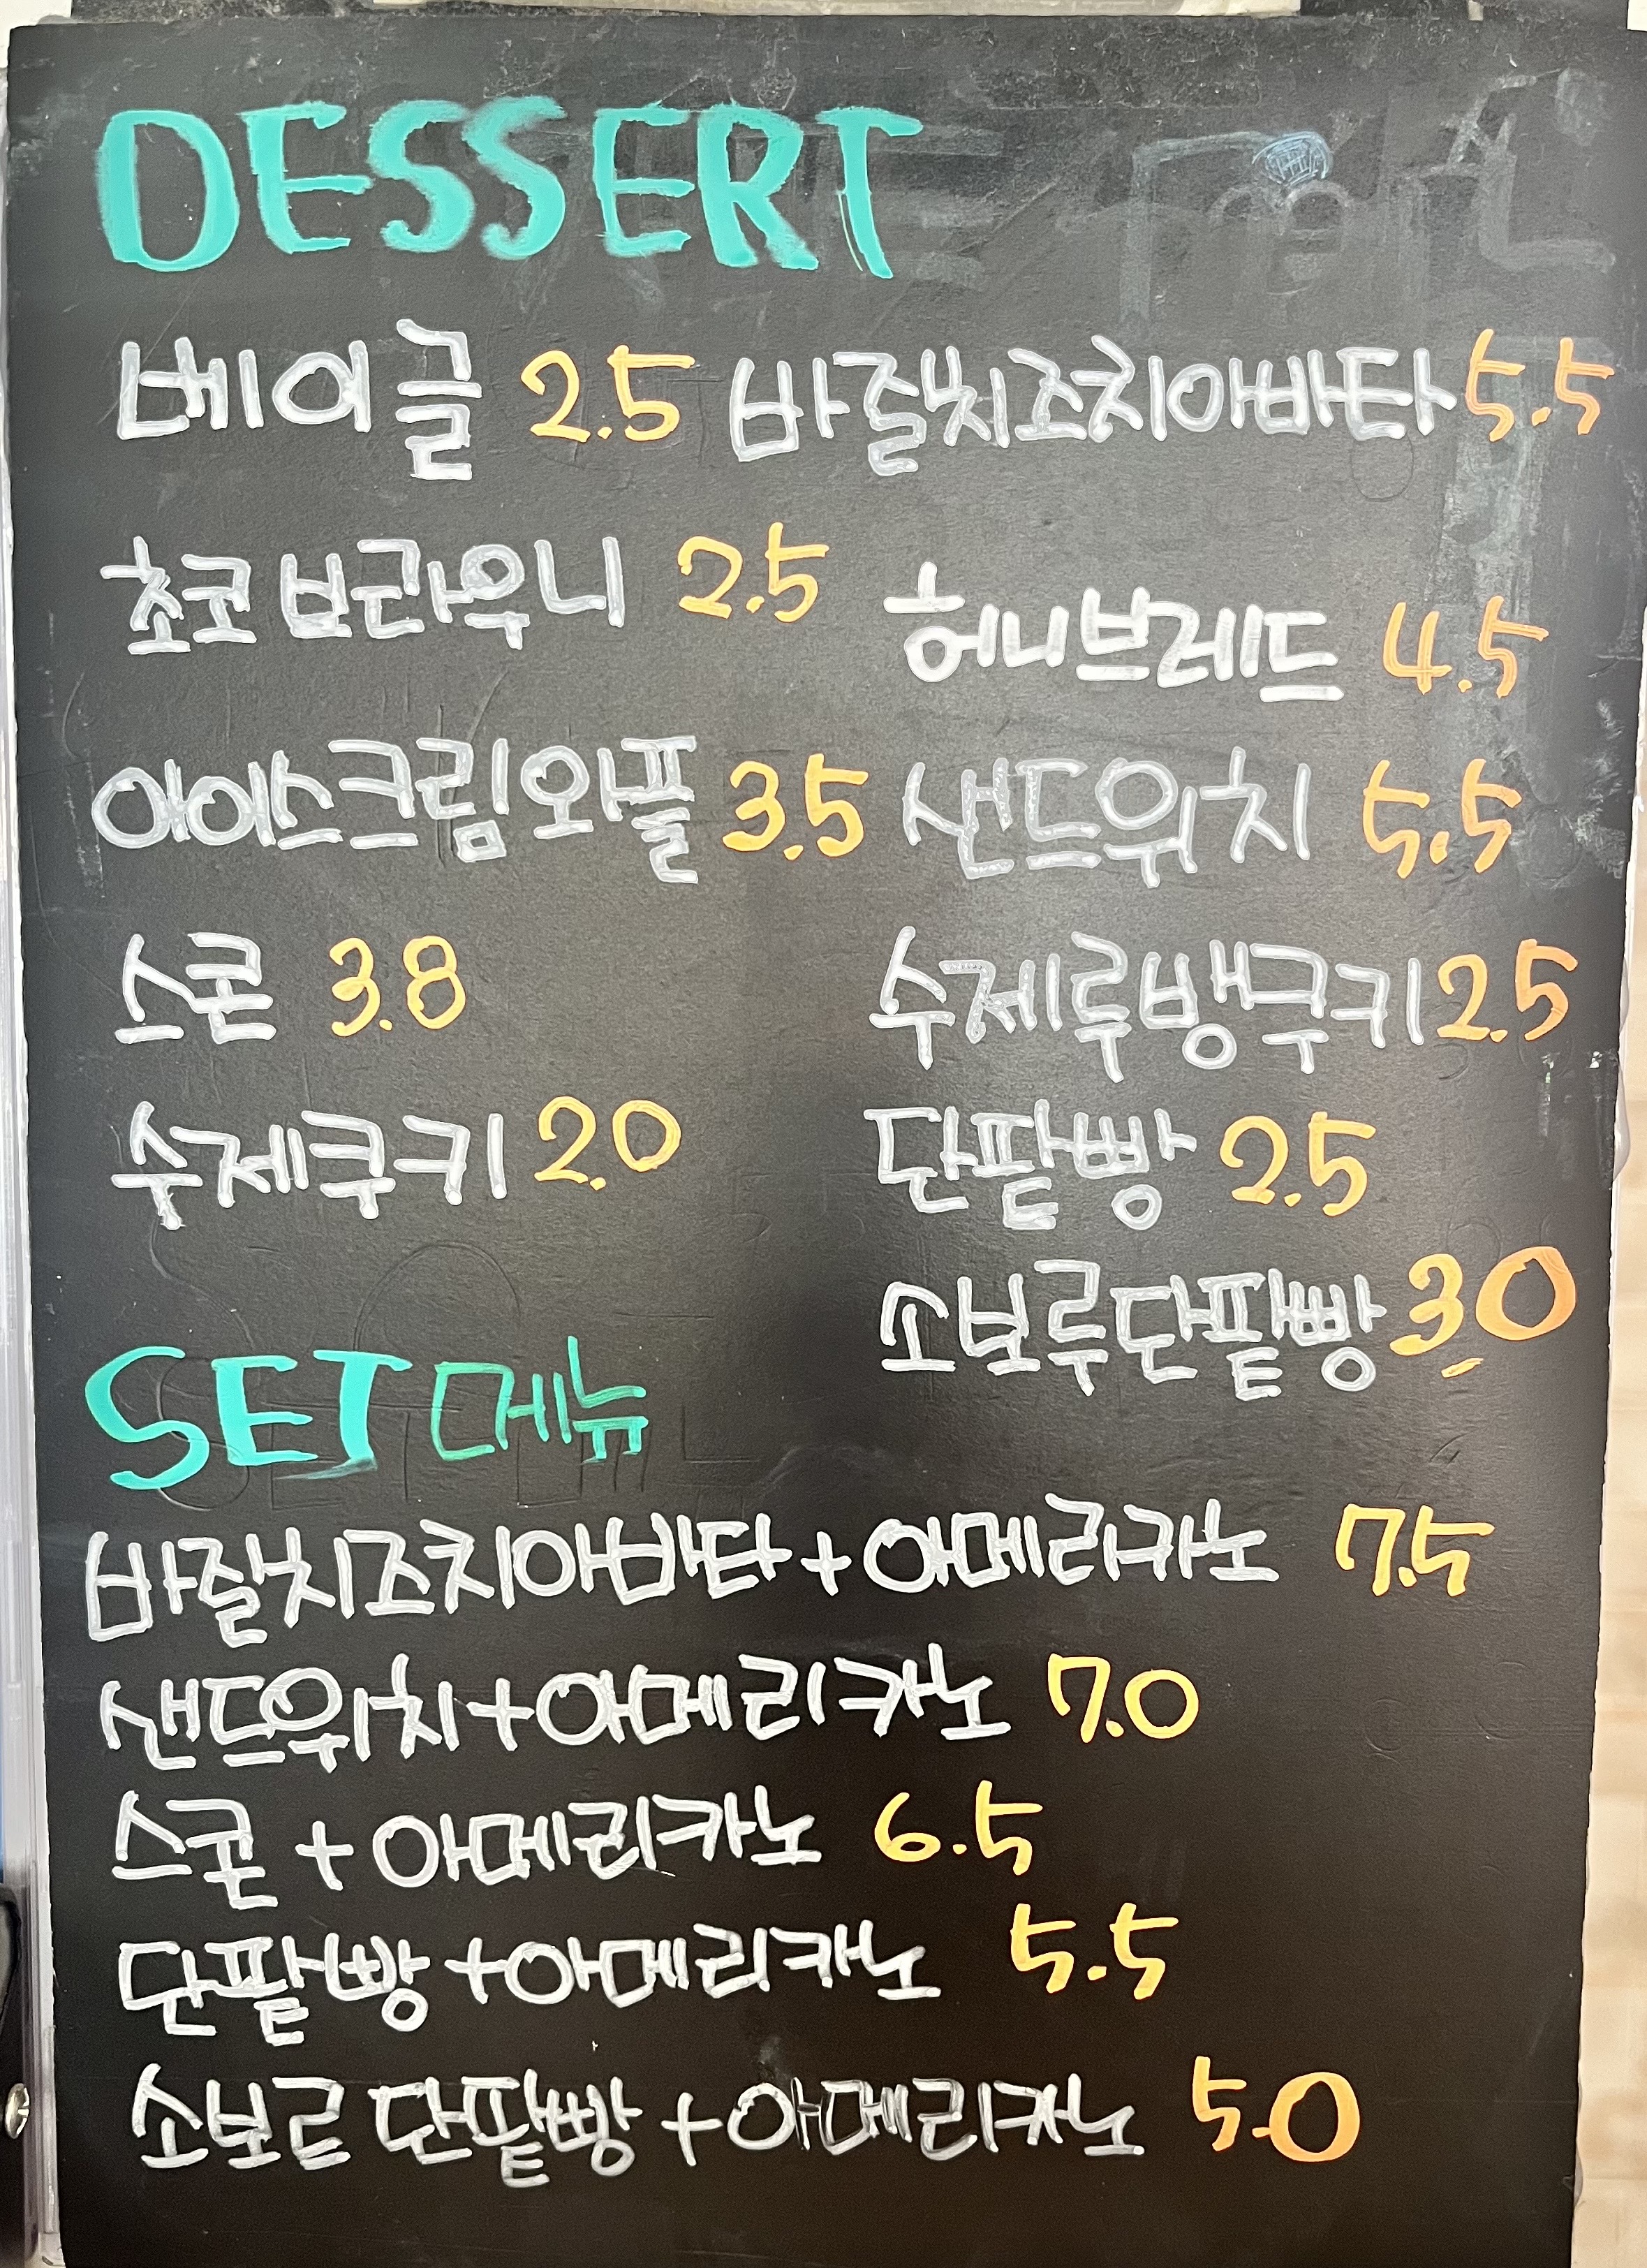 DESSERT
베이글 2.5 바질치즈치아바타 5.5
초코 브라우니 2.5 허니브레드 4.5
아이스크림 와플 3.5 샌드위치 5.5
스콘 3.8 수제르뱅쿠키 2.5
수제쿠키 2.0 단팥빵 2.5
소보루단팥빵 3.0
SET 메뉴
바질치즈치아바타 + 아메리카노 7.5
샌드위치 + 아메리카노 7.0
스콘 + 아메리카노 6.5
단팥빵 + 아메리카노 5.5
소보르 단팥빵 + 아메리카노 5.0